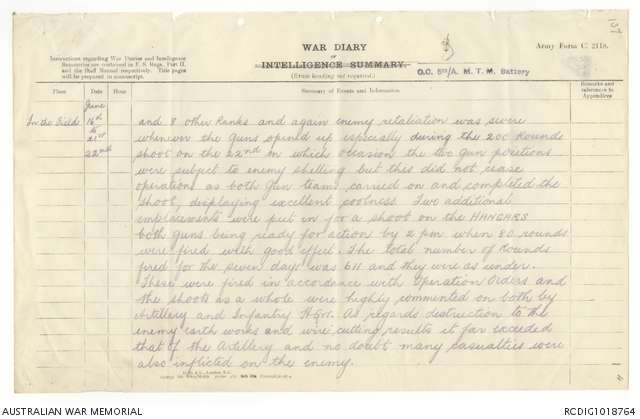 WAR DIARY
OF
INTELLIGENCE SUMMARY.
(Erase heading not required.)
Army Form C. 2118.
Instructions regarding War Diaries and Intelligence
Summaries are contained in F. S. Regs., Part II.
and the Staff Manual respectively. Title pages
will be prepared in manuscript.
O.C. 5th/A. M. T. M. Battery
Place Date Hour Summary of Events and Information Remarks and references to Appendices
June
In the Field 16th to 21st and 8 other Ranks and again enemy retaliation was severe
whenever the guns opened up especially during the 200 Rounds
22nd shoot on the 22nd in which occasion the two gun positions
were subject to enemy shelling but this did not cease
operation as both gun teams carried on and completed the
shoot, displaying excellent coolness. Two additional
emplacements were put in for a shoot on the HANGARS
both guns being ready for action by 2 pm when 80 rounds
were fired with good effect. The total number of Rounds
fired for the seven days was 611 and they were as under.
These were fired in accordance with Operation Orders and
the shoots as a whole were highly commented on both by
Artillery and Infantry Hqrs. As regards destruction to the
enemy earth works and wire cutting results it far exceeded
that of the Artillery and no doubt many casualties were
also inflicted on the enemy.
AUSTRALIAN WAR MEMORIAL
RCDIG1018764